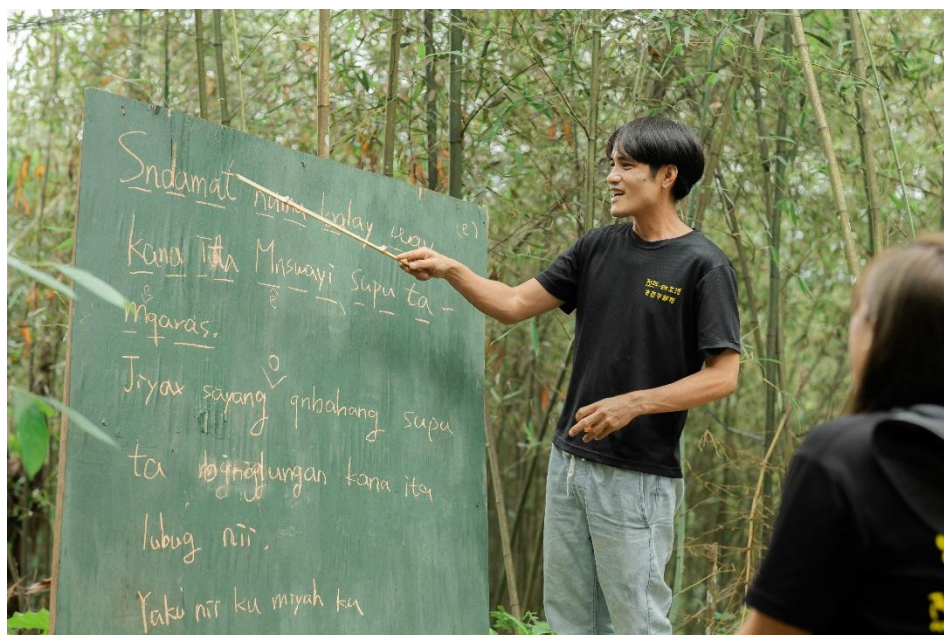 Sndamat namu balay uway (e)
kana Ita Mnswayi, supu ta
mqaras.
Jiyax sayang qnbahang supu
ta lnglungan kana ita
lubug nii.
Yaku nii ku miyah ku